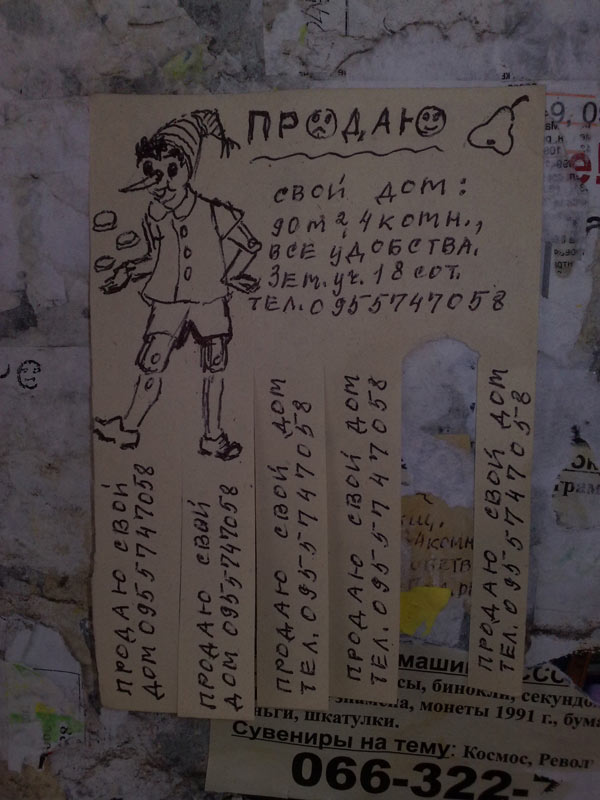 ПРОДАЮ
СВОЙ ДОМ:
90м2, 4 КОМН.,
ВСЕ УДОБСТВА.
Зем. уч. 18 сот.
ТЕЛ. 0955747058
ПРОДАЮ СВОЙ
ДОМ 0955747058
ПРОДАЮ СВОЙ
ДОМ 0955747058
ПРОДАЮ СВОЙ ДОМ
ТЕЛ. 0955747058
ПРОДАЮ СВОЙ ДОМ
ТЕЛ. 0955747058
ПРОДАЮ СВОЙ ДОМ
ТЕЛ. 0955747058
бинокли,
монеты 1991 г.,
шкатулки.
Сувениры на тему: Космос,
066-322-